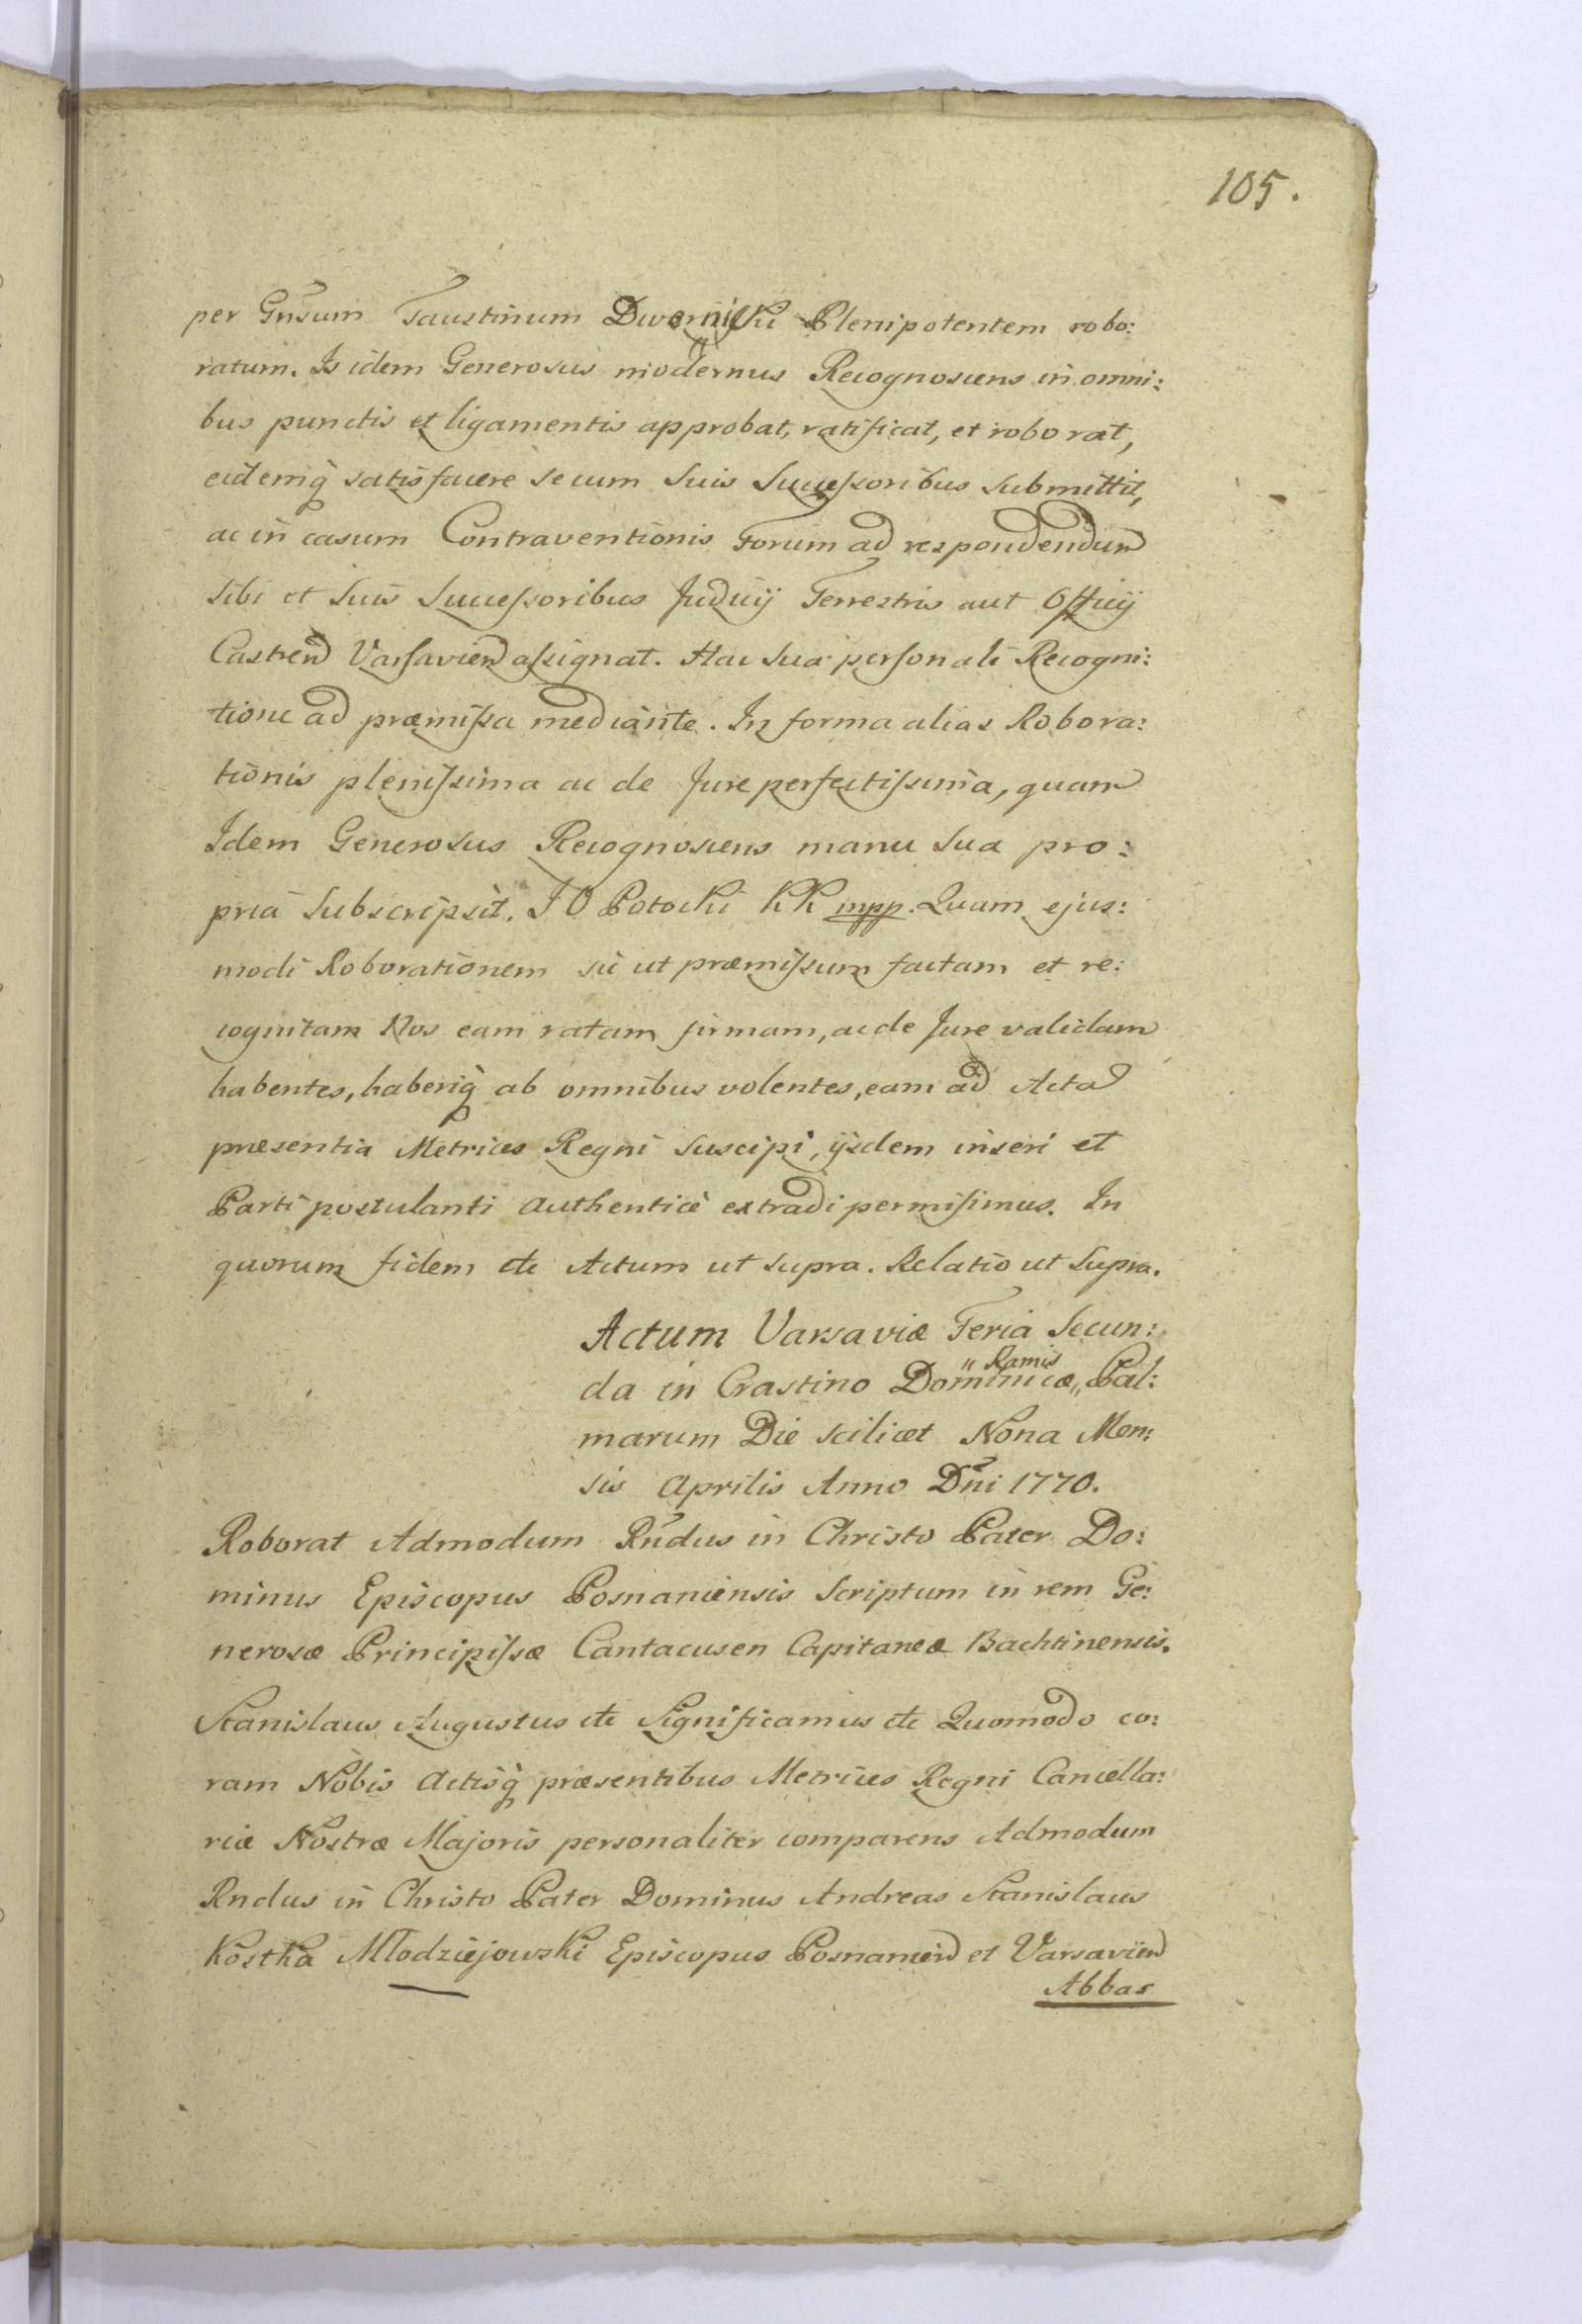 105.
per Gnsum Faustinum Dwernicki Plenipotentem robo:
ratum. Is idem Generosus modernus Recognoscens in omni:
bus punctis et ligamentis approbat, ratificat, et roborat,
eidemq̀ satisfacere secum suis Succeſsoribus submittit,
ac in casum Contraventionis Forum ad respondendum
sibi et suis Succeſsoribus Judicij Terrestris aut Officij
Castren Varſavien aſsignat. Hac sua perſonali Recogni:
tione ad præmiſsa mediante. In forma alias Robora:
tionis pleniſsima ac de Jure perfectiſsima, quam
Idem Generosus Recognoscens manu sua pro:
pria subscripsit. J O Potocki KK mpp. Quam ejus:
modi Roborationem sic ut præmiſsum factam et re:
cognitam Nos eam ratam firmam, ac de Jure validam
habentes, haberiq̀ ab omnibus volentes, eam ad Acta
præsentia Metrices Regni suscipi, ijsdem inseri et
Parti postulanti authenticè extradi permiſimus. In
quorum fidem etc Actum ut supra. Relatio ut Supra.
Actum Varsaviæ Feria Secun:
da in Crastino Dominicæ „ Ramis „ Pal:
marum Die scilicet Nona Men:
sis Aprilis Anno Dni 1770.
Roborat Admodum Rndus in Christo Pater Do:
minus Episcopus Posnaniensis Scriptum in rem Ge:
nerosæ Principiſsæ Cantacusen Capitaneæ Bachtinensis.
Stanislaus Augustus etc Significamus etc Quomodo co:
ram Nobis Actisq̀ præsentibus Metrices Regni Cancella:
riæ Nostræ Majoris personaliter comparens Admodum
Rndus in Christo Pater Dominus Andreas Stanislaus
Kostka Młodziejowski Episcopus Posnanien et Varsavien
Abbas